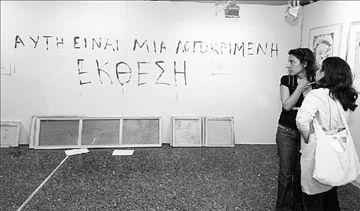 ΑΥΤΗ ΕΙΝΑΙ ΜΙΑ ΛΟΓΟΚΡΙΜΕΝΗ
ΕΚΘΕΣΗ